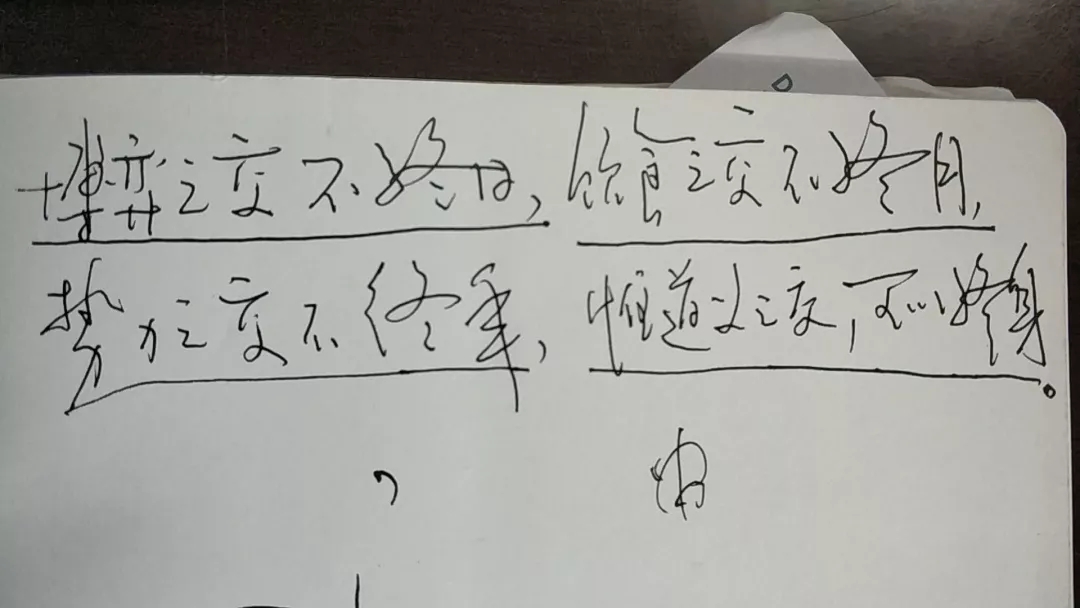 博弈之交不终日,饮食之交不终月,
势力之交不终年,惟道义之交,可以终身。